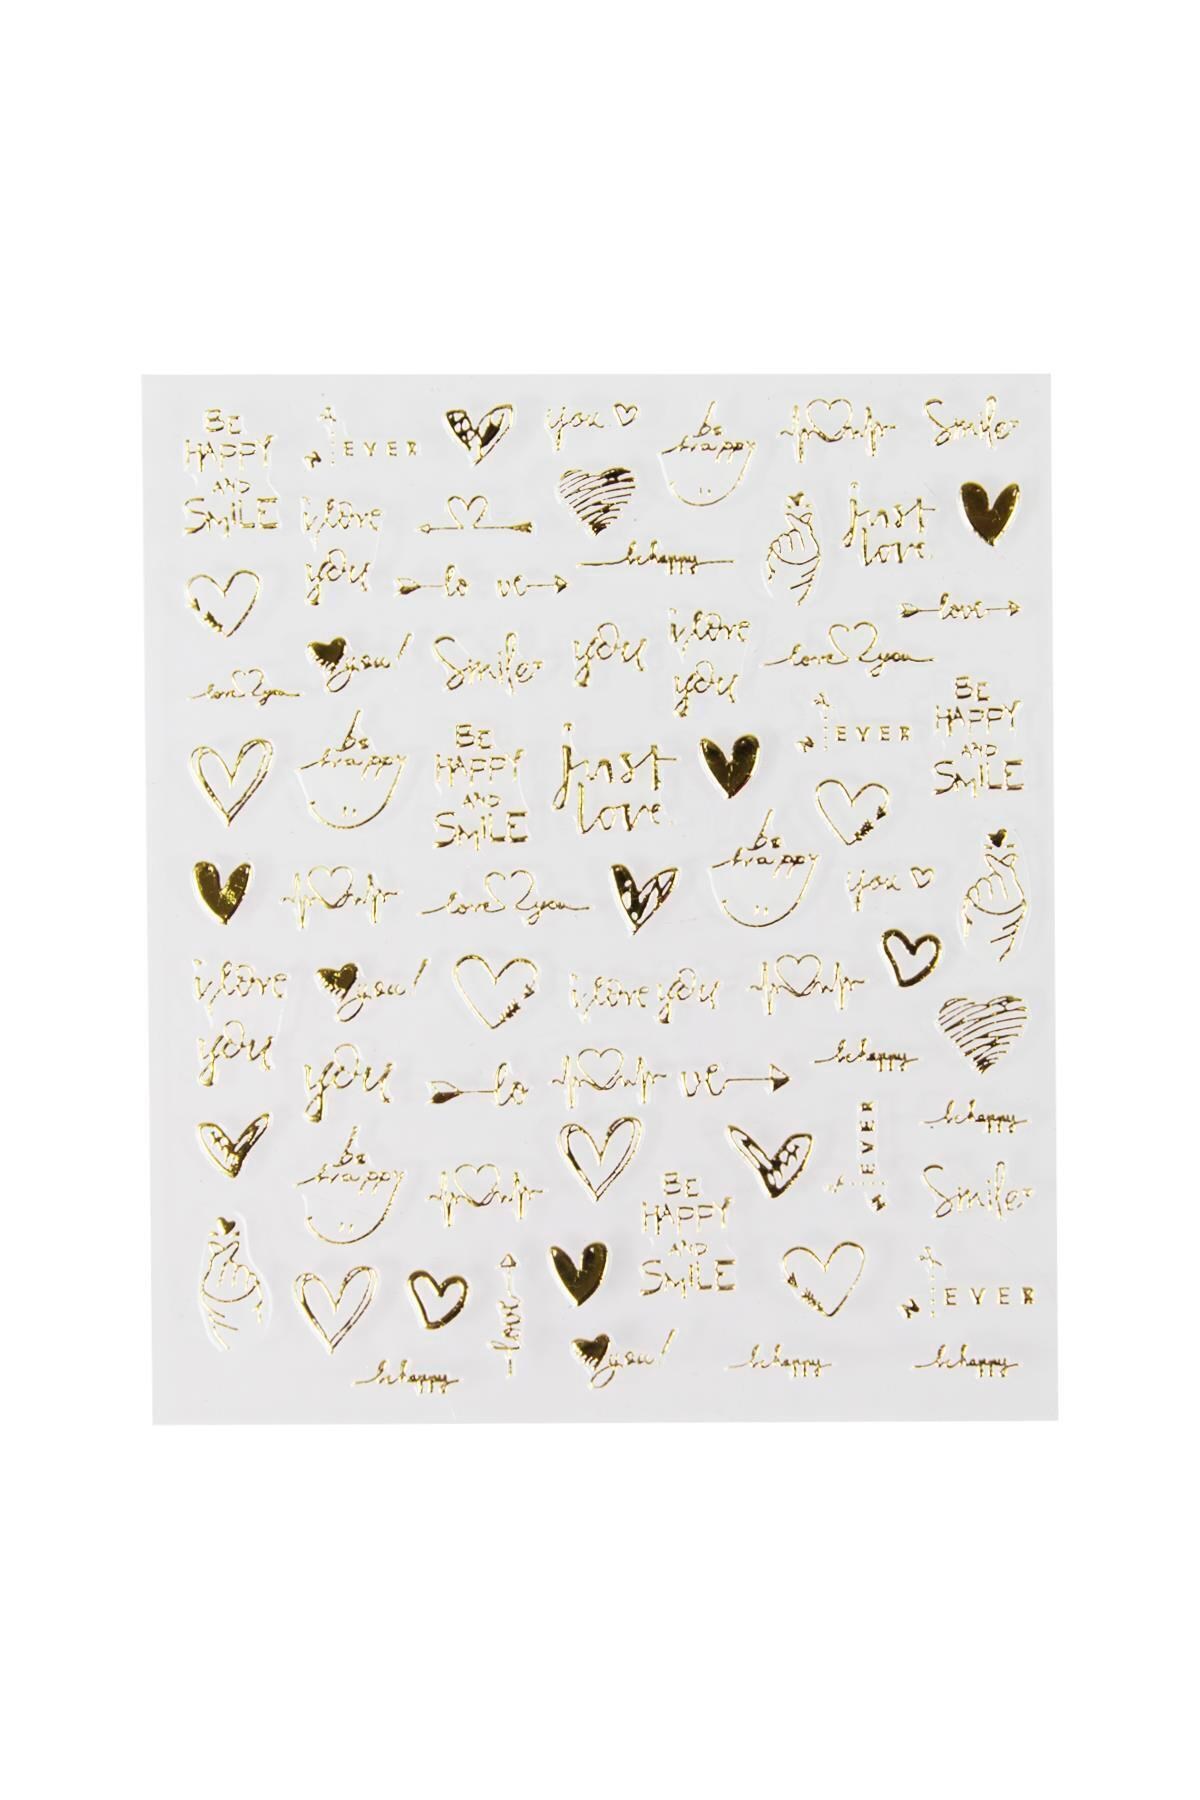 BE
HAPPY
AND
SMILE
N EVER
you
be
happy
Smile
i love
you
just
love
be happy
lo ve
love
you!
Smile
you
i love
you
love you
love you
N EVER
BE
HAPPY
AND
SMILE
be
happy
BE
HAPPY
AND
SMILE
just
love
be
happy
you
love you
i love
you
you!
i love you
be happy
you
lo ve
be happy
N EVER
be
happy
Smile
BE
HAPPY
AND
SMILE
love
N EVER
you!
be happy
be happy
be happy